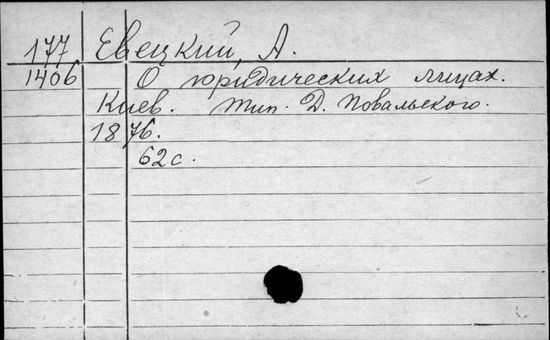 177 Евецкий, А.
1406 О юридических лицах.
Киев. Тип. Д. Повальского.
1876.
62с.